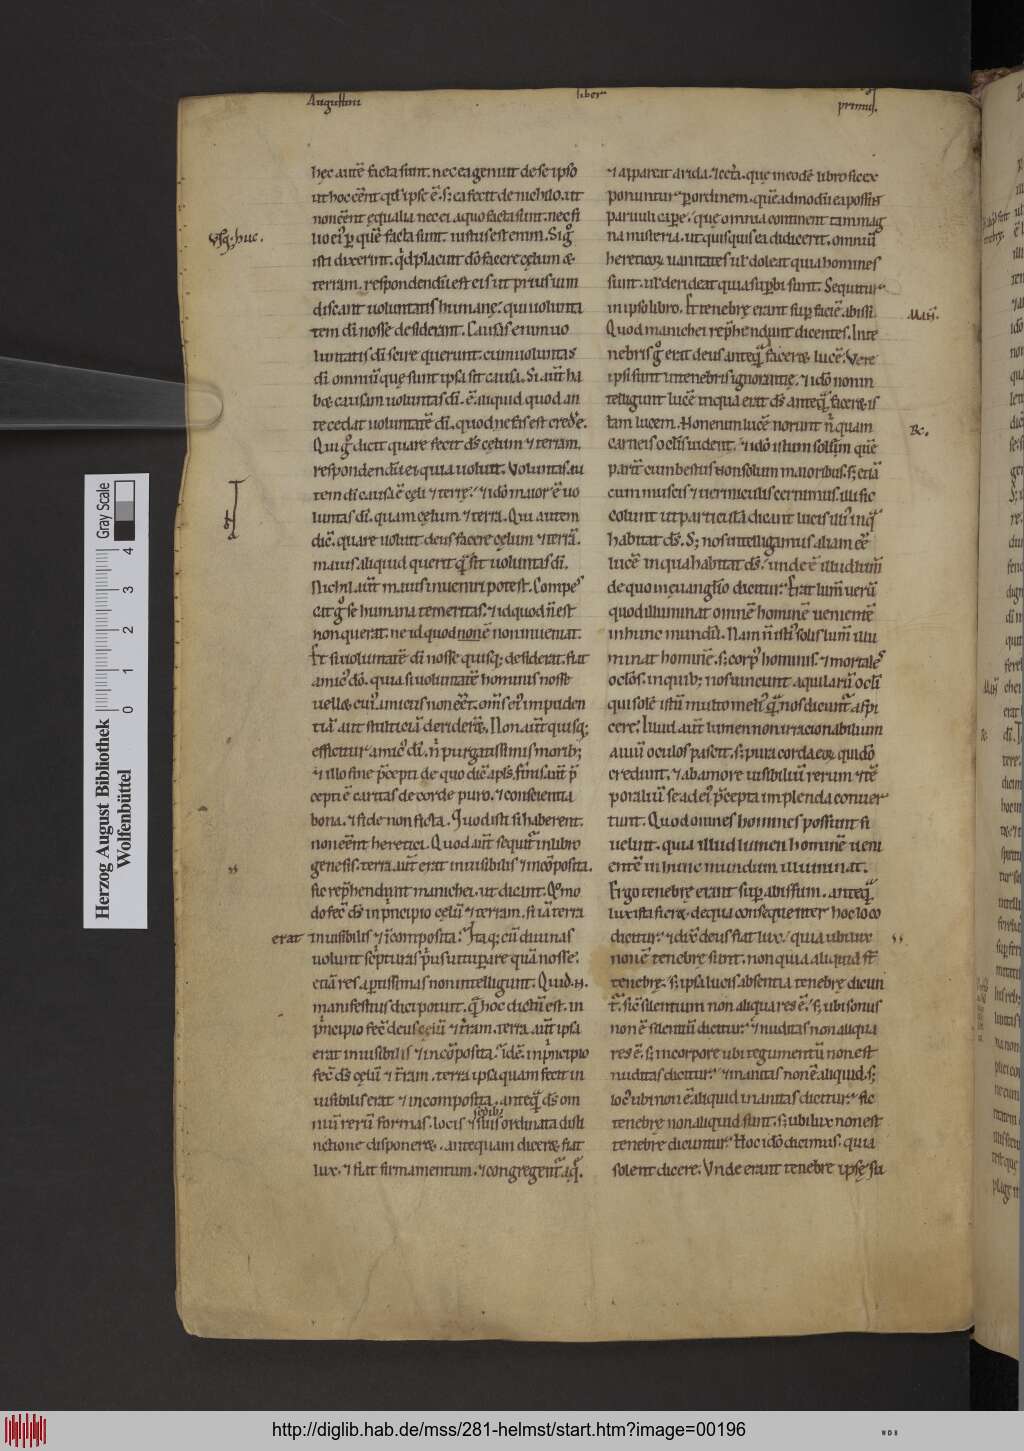 Augustini
liber
primus.
hęc autē facta sunt. nec ea genuit de se ipso
ut hoc eēnt qd' ipse ē. s; ea fecit de nichilo. ut
non eēnt ęqualia nec ei. a quo facta sunt. nec fi
lio ei' p quē facta sunt. iustus est enim. Si gͦ
vsq; huc.
isti dixerint. qd placuit dō facere cęlum &
terram. respondendū est eis ut prius uim
discant uoluntatis humanę. qui uolunta
tem di nosse desiderant. Causas enim uo
luntatis di scire querunt. cum uoluntas
di. omniū quę sunt ipsa sit causa. Si aut̄ ha
b& causam uoluntas di. ē aliquid quod an
tecedat uoluntatē di. quod nefas est credͤe.
Qui gͦ dicit quare fecit ds cęlum & terram.
respondendū ei quia uoluit. Voluntas. n
tem di causa ē cęli & terrę. & idō maior ē uo
luntas di. quam cęlum & terra. Qui autem
dic̄. quare uoluit deus facere cęlum & terrā.
maius aliquid querit quā sit uoluntas di.
Nichil aut̄ maius inueniri potest. Compes
cat gͦ se humana temeritas. & id quod n̄ est
non querat. ne id quod non ē non inueniat.
Et si uoluntatē di nosse quisq; desiderat. fiat
amic' dō. quia si uoluntatē hominis nosse
uell&. cui' amicus non eēt. om̄s ei' impuden
tiā aut stulticiā derider&. Non aut̄ quisq;
efficitur amic' di. n purgatissimis morib;
& illo fine p̄cepti de quo dic̄ apls. finis aut̄ p̄
cepti ē caritas de corde puro. & conscientia
bona. & fide non ficta. Quod isti si haberent.
non eēnt heretici. Quod aut̄ sequit̄ in libro
genesis. terra aut̄ erat inuisibilis & incōposita.
sic rep̄hendunt manichei. ut dicant. Qͦmo
do fec̄ ds in p̄ncipio cęlū & terram. si iā terra
erat
inuisibilis & īcomposita. Ita q; cū diuinas
uolunt sc̄pturas p̄us uituperare quā nosse.
etiā res aptissimas non intelligunt. Quid .n.
manifestius dici potuit. quā hoc dictū est. in
p̄ncipio fec̄ deus cęlū & t̄ram. terra aut̄ ipsa
erat inuisibilis & incōposita. idē. in p̄ncipio
fec̄ ds cęlū & t̄ram. terra ipsa quam fecit in
uisibilis erat & incomposita. anteq̄ ds om
niū rerū formas. locis & sedib;
suis ordinata disti
nctione disponer&. antequam dicer& fiat
lux. & fiat firmamentum. & congregent̄ aq̄.
& appareat arida. & cet̄a. que in eodē libro sic ex
ponuntur p ordinem. quēadmodū ea possint
paruuli cape. quę omnia continent tam mag
na misteria. ut quisquis ea didicerit. omniū
hereticoꝝ uanitates ul' doleat quia homines
sunt. ul' derideat quia supbi sunt. Sequitur
in ipso libro. Et tenebrę erant sup faciē abissi.
Mani.
Quod manichei rep̄hendunt dicentes. In te
nebris gͦ erat deus anteq̄ facer& lucē. Vere
ipsi sunt in tenebris ignorantię. & idō non in
telligunt lucē in qua erat ds anteq̄ facer& is
tam lucem. Non enim lucē norunt n quam
Rc.
carneis oclis uident. & idō istum solem quē
parit̄ cum bestiis non solum maioribus. s; etiā
cum muscis & uermiculis cernimus. illi sic
colunt ut particulā dicant lucis illi' in q̄
habitat ds. S; nos intelligamus aliam eē
lucē in qua habitat ds. unde ē illud lum̄
de quo in ęuanglio dicitur. Erat lum̄ uerū
quod illuminat omnē hominē uenientē
in hunc mundū. Nam n̄ isti' solis lum̄ illu
minat hominē. s; corp' hominis. & mortales
oclōs. in quib; nos uincunt aquilarū ocli
qui solē istū multo meli' q̄ nos dicunt̄ aspi
cere. Illud aut̄ lumen non irracionabilium
auiū oculos pascit. s; pura corda eoꝝ qui dō
credunt. & ab amore uisibiliū rerum & tē
poraliū se ad ei' p̄cepta implenda conuer
tunt. Quod omnes homines possunt si
uelint. quia illud lumen hominē ueni
entē in hunc mundum illuminat.
Ergo tenebrę erant sup abissum. anteq̄
lux ista fier&. de qua consequenter hoc loco
dicitur. & dix' deus fiat lux. quia ubi lux
non ē tenebrę sunt. non quia aliquid sī
tenebrę. s; ipsa lucis absentia tenebrę dicun
t̄. sic silentium non aliqua res ē. s; ubi sonus
non ē silentiū dicitur. & nuditas non aliqua
res ē. s; in corpore ubi tegumentū non est
nuditas dicitur. & inanitas non ē aliquid. s;
loc' ubi non ē aliquid inanitas dicitur. sic
tenebrę non aliquid sunt. s; ubi lux non est
tenebrę dicuntur. Hoc idō dicimus. quia
solent dicere. Vnde erant tenebre ipsę su
Herzog August Bibliothek
Wolfenbüttel
Gray Scale
0 1 2 3 4
http://diglib.hab.de/mss/281-helmst/start.htm?image=00196